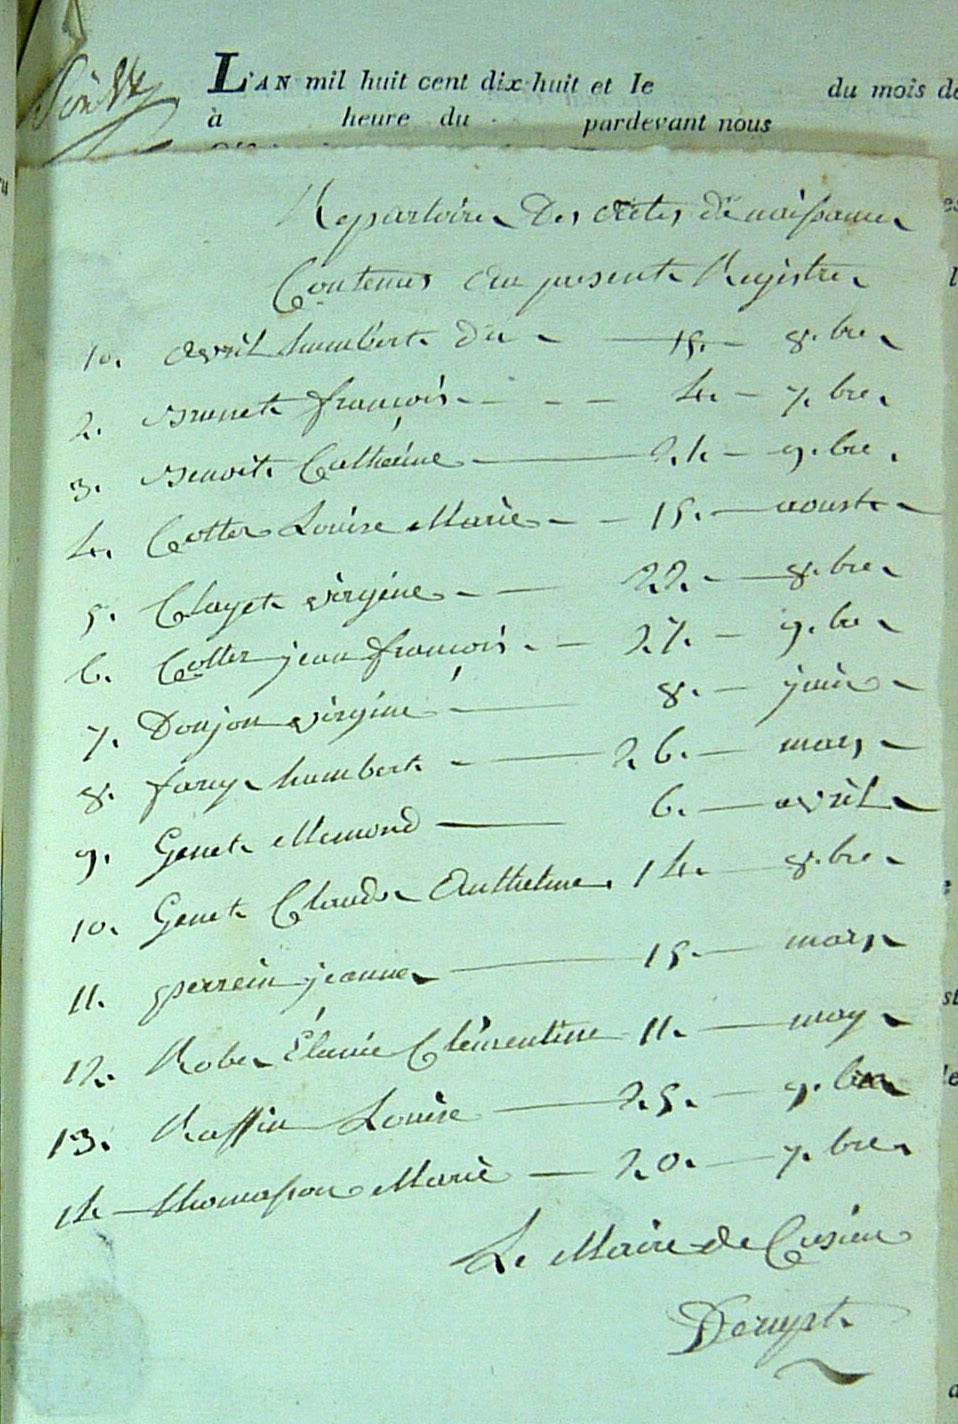 L'AN mil huit cent dix-huit et le du mois de
à heure du pardevant nous
Repartoire Des actes de naissance
Contenus au present Registre
10. avril humbert Du 15. 8.bre
2. Brunet françois 4. 7.bre
3. Benoit Catherine 24 9.bre
4. Cotter Louise Marie 15. aoust
5. Clayet virginie 22. 8.bre
6. Cotter jean françois 27. 9.bre
7. Donjon virginie 8. juin
8. favry humbert 26. mars
9. Genet Memond 6. avril
10. Genet Claude Anthelme 14. 8.bre
11. perrein jeanne 15. mars
12. Robe Clementine 11. may
13. Raffin Louise 25. 9.bre
14 thomasson Marie 20. 7.bre
Le Maire de Cusieu